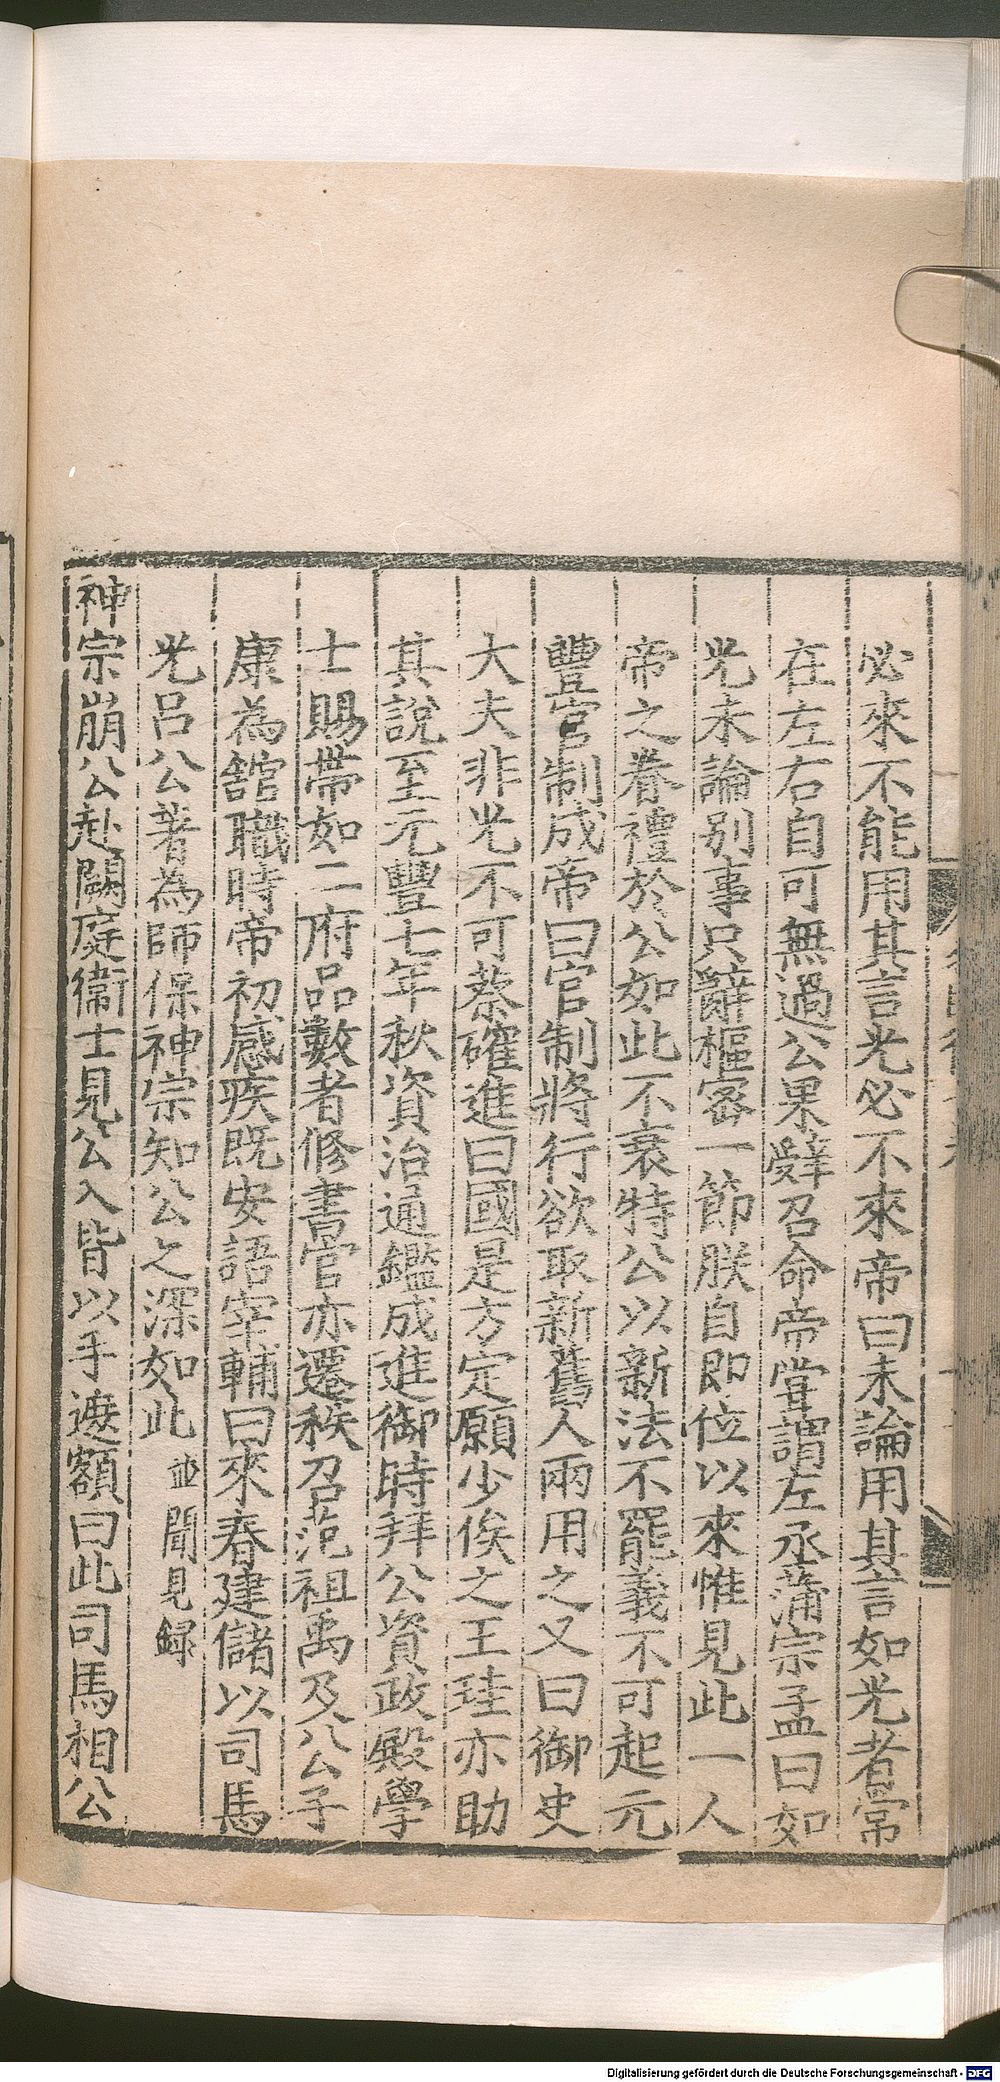 必來不能用其言光必不來帝曰未論用其言如光者常
在左右自可無過公果辤召命帝嘗謂左丞蒲宗孟曰如
光未論别事只辭樞密一節朕自即位以來惟見此一人
帝之眷禮於公如此不衰特公以新法不罷義不可起元
豐官制成帝曰官制將行欲取新舊人兩用之又曰御史
大夫非光不可蔡確進曰國是方定願少俟之王珪亦助
其說至元豐七年秋資治通鑑成進御時拜公資政殿學
士賜帶如二府品數者修書官亦遷秩召范祖禹及公子
康為館職時帝初感疾既安語宰輔曰來春建儲以司馬
光呂公著為師保神宗知公之深如此 並聞見録
神宗崩公赴闕庭衛士見公入皆以手遮額曰此司馬相公
Digitalisierung gefördert durch die Deutsche Forschungsgemeinschaft - DFG